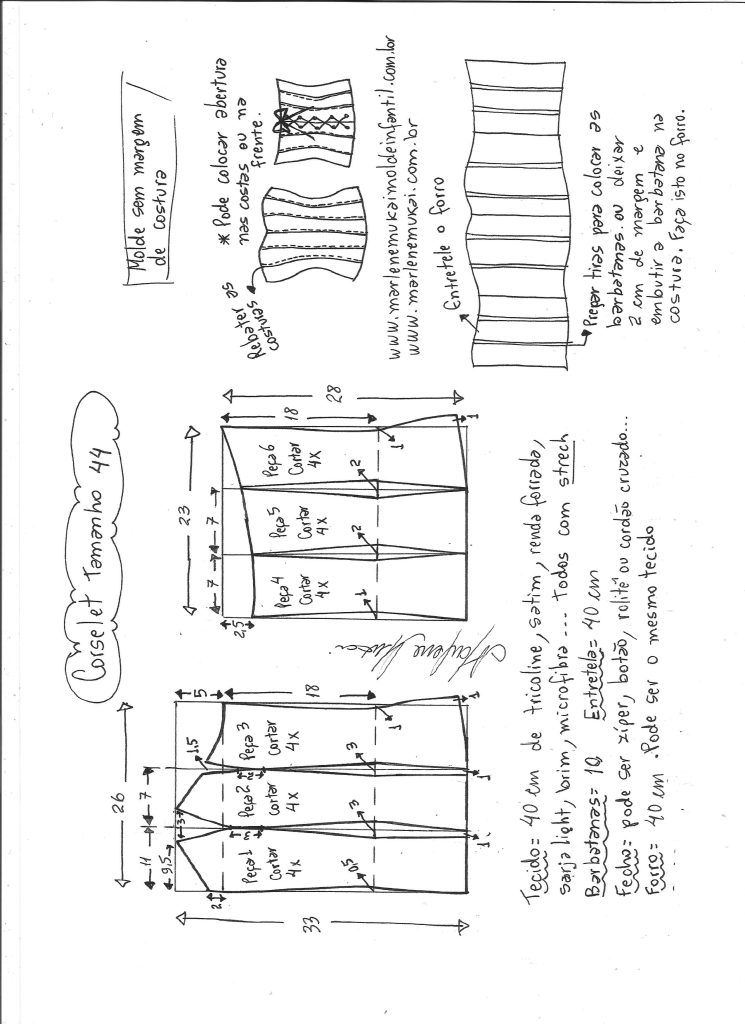 Corselet Tamanho 44
Molde sem margem
de costura
* Pode colocar abertura
nas costas ou na
frente.
Rebater as
costuras
www.marlenemukaimoldeinfantil.com.br
www.marlenemukai.com.br
Entretele o forro
Prepar tiras para colocar as
barbatanas. ou deixar
2 cm de margem e
embutir a barbatana na
costura. Faça isto no forro.
26
11
7
9,5
3
1,5
5
2
18
33
Peça 1
Cortar
4x
Peça 2
Cortar
4x
Peça 3
Cortar
4x
3
2
0,5
3
3
1
1
1
1
23
7
7
2,5
18
28
Peça 4
Cortar
4x
Peça 5
Cortar
4x
Peça 6
Cortar
4x
1
2
2
1
1
Marlene Mukai
Tecido= 40 cm de tricoline, satim, renda forrada,
sarja light, brim, microfibra ... Todos com strech
Barbatanas= 10 Entretela= 40 cm
Fecho= pode ser zíper, botão, rolitê ou cordão cruzado...
Forro= 40 cm. Pode ser o mesmo tecido